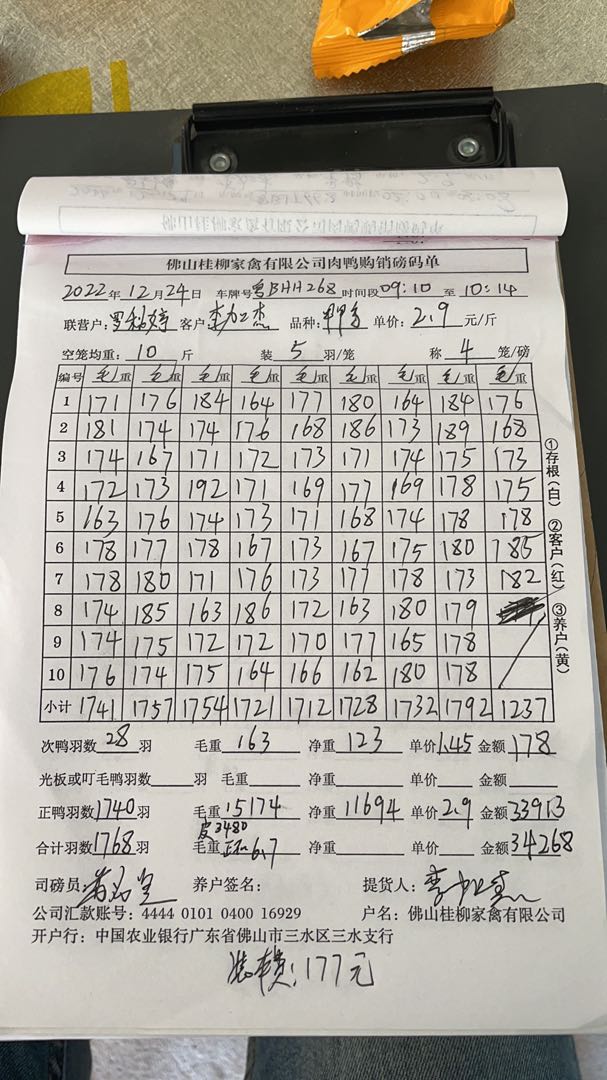 佛山桂柳家禽有限公司肉鸭购销磅码单
2022年 12月 24日 车牌号 粤BHH268 时间段 09:10 至 10:14
联营户: 客户: 品种: 单价: 2.9 元/斤
空笼均重: 10 斤 装 5 羽/笼 称 4 笼/磅
编号 毛重 毛重 毛重 毛重 毛重 毛重 毛重 毛重 毛重
1 171 176 184 164 177 180 164 184 176
2 181 174 174 176 168 186 173 189 168
3 174 167 171 172 173 171 174 175 173
4 172 173 192 171 169 177 169 178 175
5 163 176 174 173 171 168 174 178 178
6 178 177 178 167 173 167 175 180 185
7 178 180 171 176 173 177 178 173 182
8 174 185 163 186 172 163 180 179
9 174 175 172 172 170 177 165 178
10 176 174 175 164 166 162 180 178
小计 1741 1757 1754 1721 1712 1728 1732 1792 1237
①存根(白) ②客户(红) ③养户(黄)
次鸭羽数 28 羽 毛重 163 净重 123 单价 1.45 金额 178
光板或叮毛鸭羽数 羽 毛重 净重 单价 金额
正鸭羽数 1740 羽 毛重 15174 净重 11694 单价 2.9 金额 33913
皮3480
合计羽数 1768 羽 毛重 6.7 净重 单价 金额 34268
司磅员: 养户签名: 提货人:
公司汇款账号: 4444 0101 0400 16929 户名: 佛山桂柳家禽有限公司
开户行: 中国农业银行广东省佛山市三水区三水支行
装车费: 177元